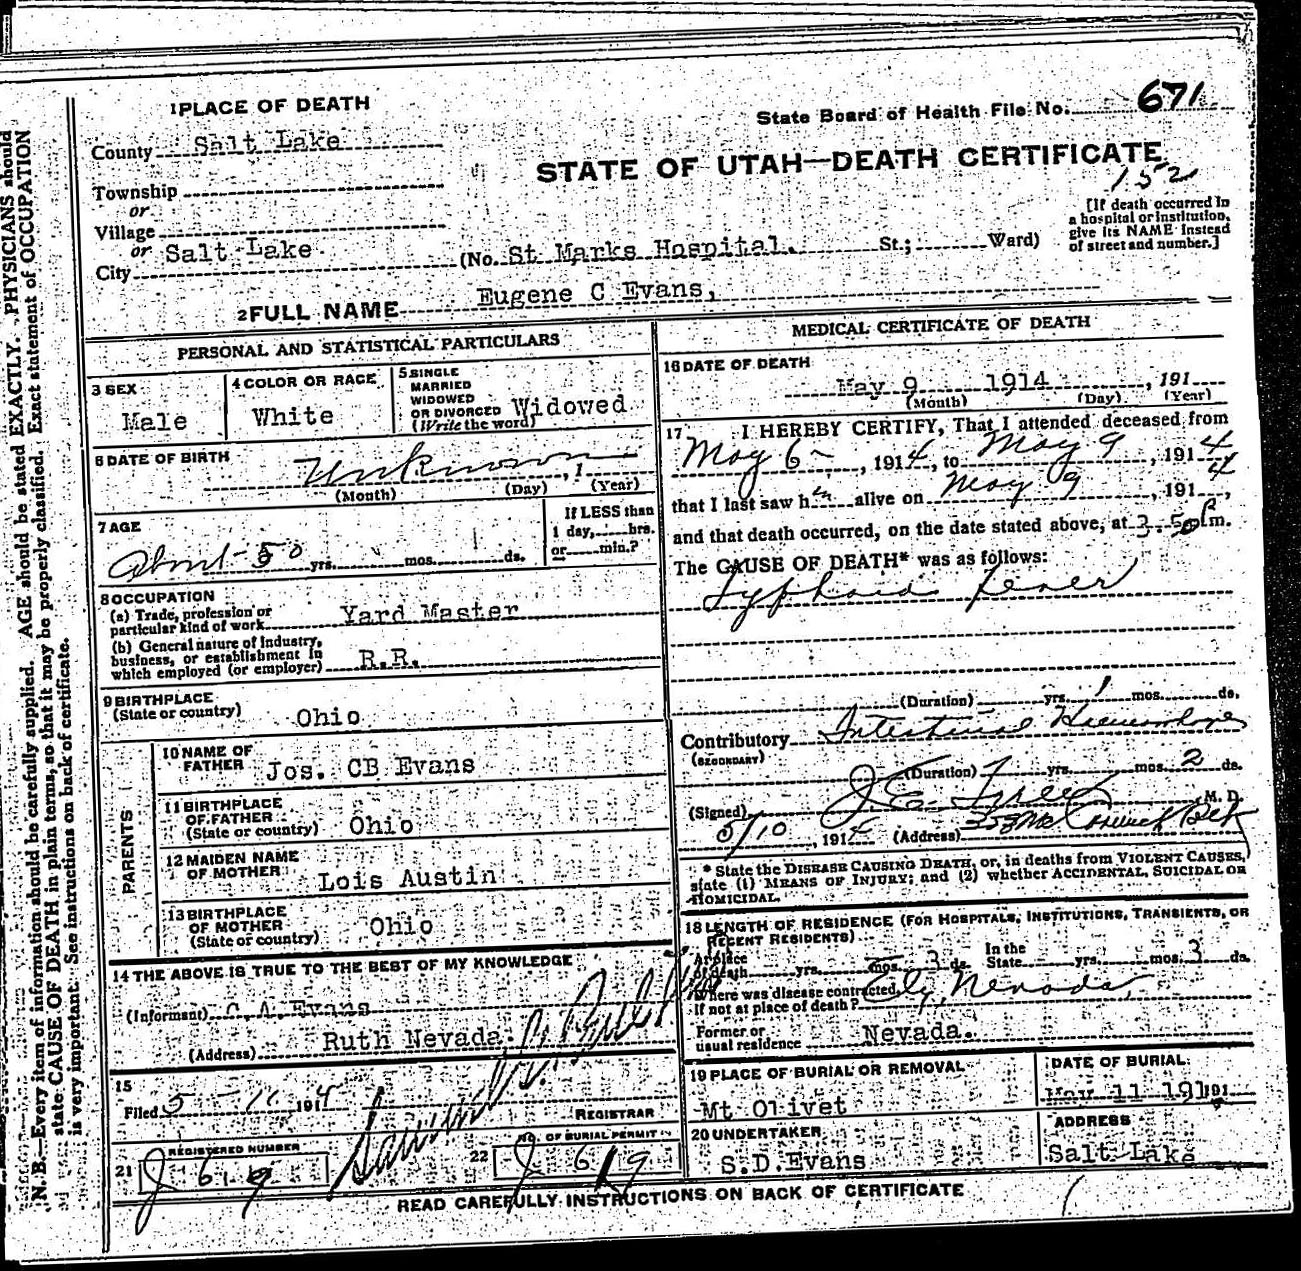 1 PLACE OF DEATH
County Salt Lake
Township
or
Village
or
City Salt Lake (No. St Marks Hospital. St.; Ward)
State Board of Health File No. 671
STATE OF UTAH—DEATH CERTIFICATE
152
[If death occurred in
a hospital or institution,
give its NAME instead
of street and number.]
2 FULL NAME Eugene C Evans,
PERSONAL AND STATISTICAL PARTICULARS
3 SEX
Male
4 COLOR OR RACE
White
5 SINGLE
MARRIED
WIDOWED
OR DIVORCED
(Write the word)
Widowed
6 DATE OF BIRTH
Unknown, 1
(Month) (Day) (Year)
7 AGE
About 50 yrs. mos. ds.
If LESS than
1 day, hrs.
or min.?
8 OCCUPATION
(a) Trade, profession or
particular kind of work Yard Master
(b) General nature of Industry,
business, or establishment in
which employed (or employer) R.R.
9 BIRTHPLACE
(State or country) Ohio
PARENTS
10 NAME OF
FATHER Jos. CB Evans
11 BIRTHPLACE
OF FATHER
(State or country) Ohio
12 MAIDEN NAME
OF MOTHER Lois Austin
13 BIRTHPLACE
OF MOTHER
(State or country) Ohio
14 THE ABOVE IS TRUE TO THE BEST OF MY KNOWLEDGE
(Informant) C.A.Evans
(Address) Ruth Nevada.
15
Filed 5-11 1914
REGISTRAR
21 REGISTERED NUMBER
J 619
22 NO. OF BURIAL PERMIT
J 619
MEDICAL CERTIFICATE OF DEATH
16 DATE OF DEATH
May 9 1914, 191
(Month) (Day) (Year)
17 I HEREBY CERTIFY, That I attended deceased from
May 6-, 1914, to May 9, 1914
that I last saw him alive on May 9, 1914,
and that death occurred, on the date stated above, at 3.50 P m.
The CAUSE OF DEATH* was as follows:
Typhoid Fever
(Duration) yrs. 1 mos. ds.
Contributory Intestinal Haemorhage
(SECONDARY)
(Duration) yrs. mos. 2 ds.
(Signed) J. E. Tyree, M. D.
5/10, 1914 (Address)
* State the DISEASE CAUSING DEATH, or, in deaths from VIOLENT CAUSES,
state (1) MEANS OF INJURY; and (2) whether ACCIDENTAL, SUICIDAL OR
HOMICIDAL.
18 LENGTH OF RESIDENCE (FOR HOSPITALS, INSTITUTIONS, TRANSIENTS, OR
RECENT RESIDENTS)
At place
of death yrs. mos. 3 ds.
In the
State yrs. mos. 3 ds.
Where was disease contracted,
If not at place of death? Ely, Nevada,
Former or
usual residence Nevada.
19 PLACE OF BURIAL OR REMOVAL
Mt Olivet
DATE OF BURIAL
May 11 1914 191
20 UNDERTAKER
S.D.Evans
ADDRESS
Salt Lake
READ CAREFULLY INSTRUCTIONS ON BACK OF CERTIFICATE
N.B.—Every item of information should be carefully supplied. AGE should be stated EXACTLY. PHYSICIANS should
state CAUSE OF DEATH in plain terms, so that it may be properly classified. Exact statement of OCCUPATION
is very important. See instructions on back of certificate.